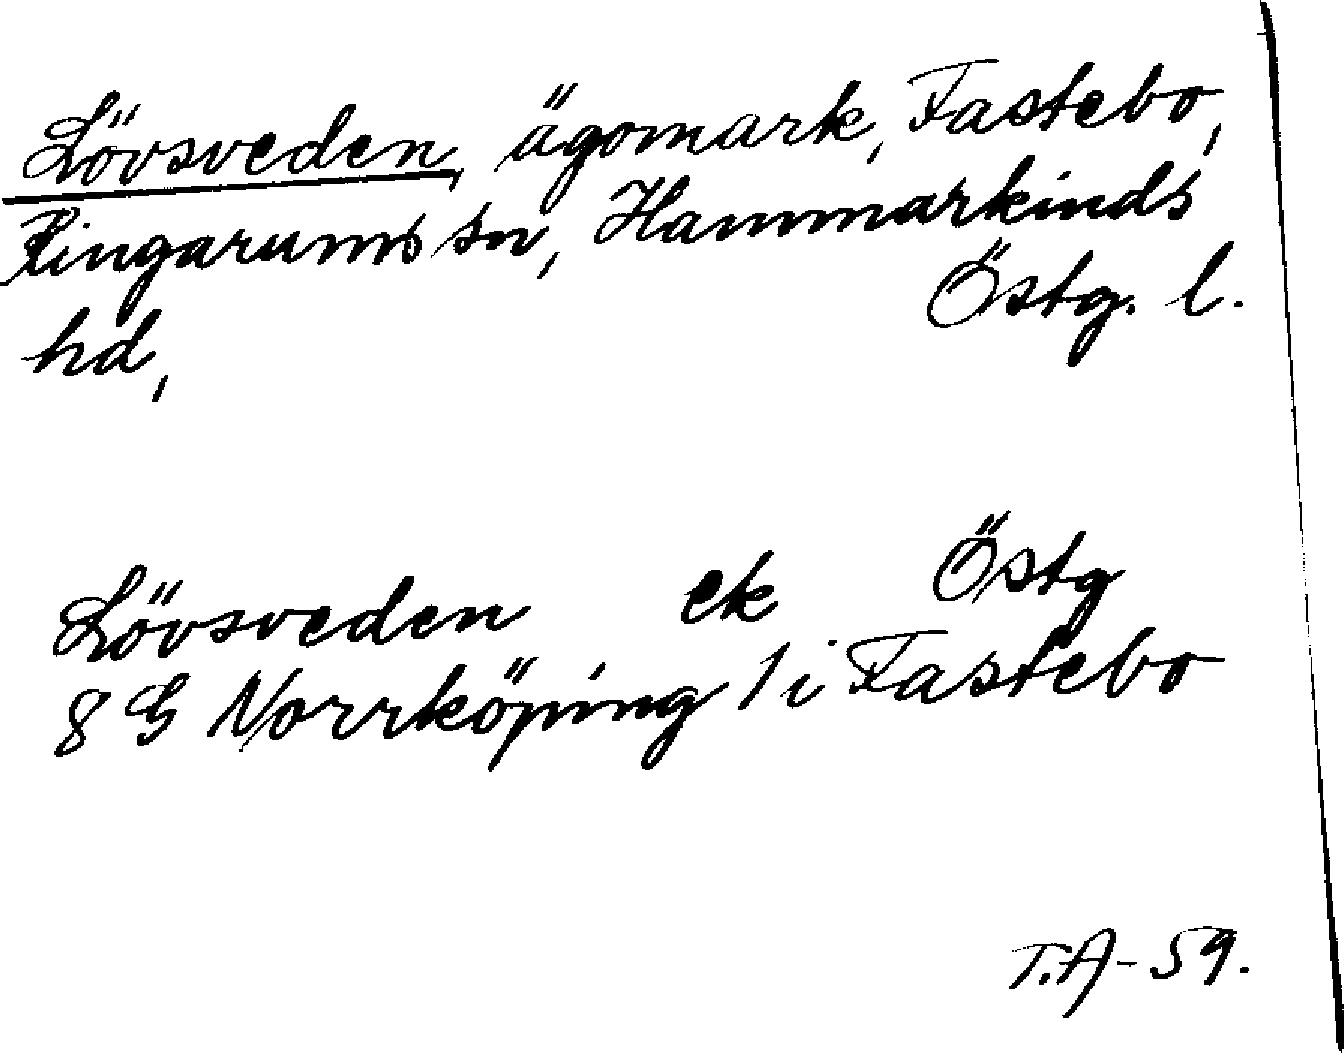 Lövsveden, ägomark, Fastebo,
Ringarums sn, Hammarkinds
hd, Östg. l.
Lövsveden ek Östg
8 G Norrköping 1 i Fastebo
T.A-59.